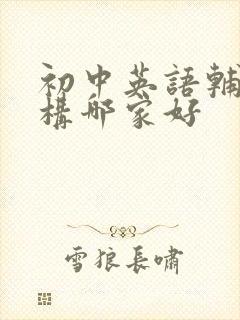 初中英語輔
構哪家好
雪狼長嘯